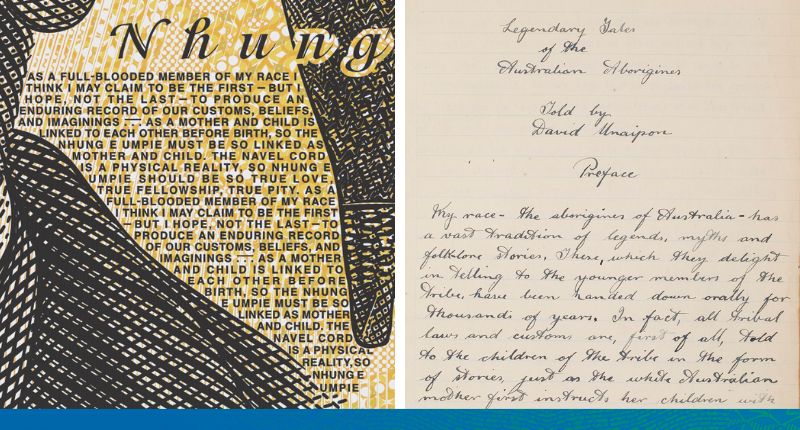 Nhung
AS A FULL-BLOODED MEMBER OF MY RACE I
THINK I MAY CLAIM TO BE THE FIRST — BUT I
HOPE, NOT THE LAST — TO PRODUCE AN
ENDURING RECORD OF OUR CUSTOMS, BELIEFS,
AND IMAGININGS — AS A MOTHER AND CHILD IS
LINKED TO EACH OTHER BEFORE BIRTH, SO THE
NHUNG UMPIE MUST BE SO LINKED AS
MOTHER AND CHILD. THE NAVEL CORD
IS A PHYSICAL REALITY, SO NHUNG E
UMPIE SHOULD BE SO TRUE LOVE,
TRUE FELLOWSHIP, TRUE PITY. AS A
FULL-BLOODED MEMBER OF MY RACE
I THINK I MAY CLAIM TO BE THE FIRST
— BUT I HOPE, NOT THE LAST — TO
PRODUCE AN ENDURING RECORD
OF OUR CUSTOMS, BELIEFS, AND
IMAGININGS — AS A MOTHER
AND CHILD IS LINKED TO
EACH OTHER BEFORE
BIRTH, SO THE NHUNG
E UMPIE MUST BE SO
LINKED AS MOTHER
AND CHILD. THE
NAVEL CORD
IS A PHYSICAL
REALITY, SO
NHUNG E
UMPIE
Legendary Tales
of the
Australian Aborigines
Told by
David Unaipon
Preface
My race - the aborigines of Australia - has
a vast tradition of legends, myths and
folklore stories. These, which they delight
in telling to the younger members of the
tribe, have been handed down orally for
thousands of years. In fact, all tribal
laws and customs are, first of all, told
to the children of the tribe in the form
of stories, just as the white Australian
mother first instructs her children with